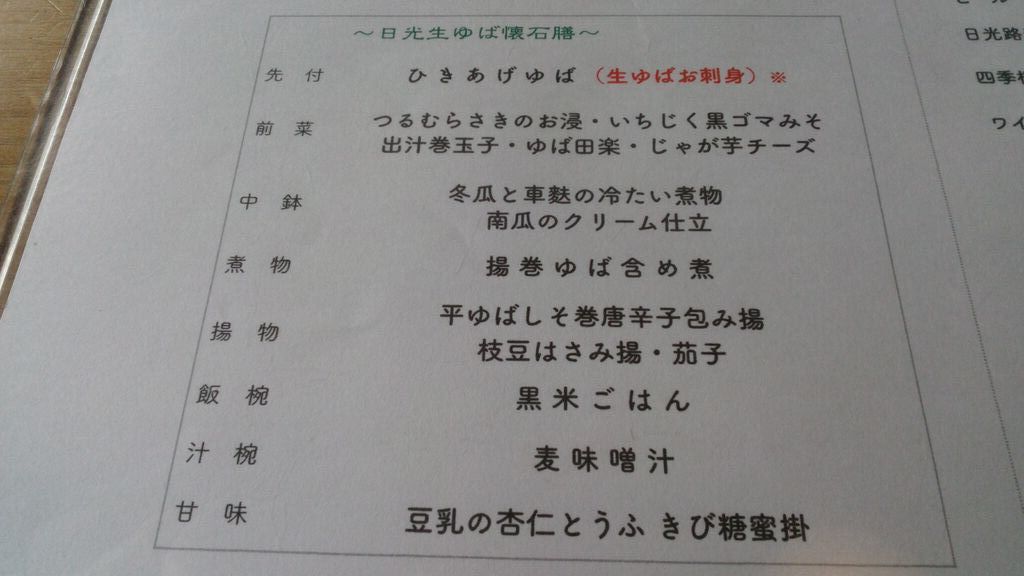 ～日光生ゆば懐石膳～
先 付 ひきあげゆば （生ゆばお刺身）※
前 菜 つるむらさきのお浸・いちじく黒ゴマみそ
出汁巻玉子・ゆば田楽・じゃが芋チーズ
中 鉢 冬瓜と車麩の冷たい煮物
南瓜のクリーム仕立
煮 物 揚巻ゆば含め煮
揚 物 平ゆばしそ巻唐辛子包み揚
枝豆はさみ揚・茄子
飯 椀 黒米ごはん
汁 椀 麦味噌汁
甘 味 豆乳の杏仁とうふ きび糖蜜掛
日光路
四季
ワイ